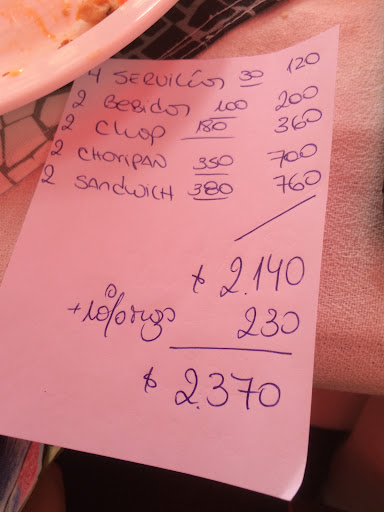 4 SERVICIOS 30 120
2 Bebidas 100 200
2 CHOP 180 360
2 CHORIPAN 350 700
2 SANDWICH 380 760
$ 2.140
+10% 230
$ 2.370